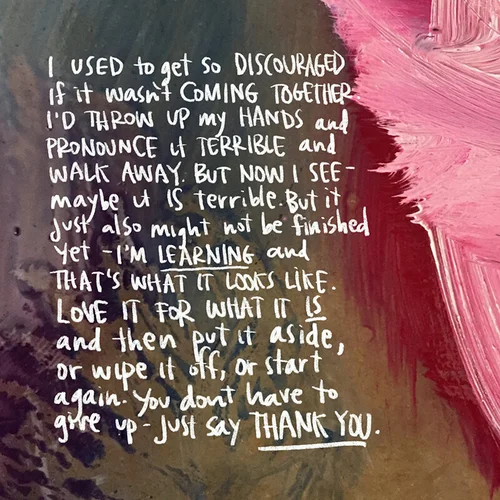 I USED to get so DISCOURAGED
if it wasn't COMING TOGETHER.
I'D THROW UP my HANDS and
PRONOUNCE it TERRIBLE and
WALK AWAY. BUT NOW I SEE-
maybe it IS terrible. But it
just also might not be finished
yet - I'M LEARNING and
THAT'S WHAT IT LOOKS LIKE.
LOVE IT FOR WHAT IT IS
and then put it aside,
or wipe it off, or start
again. You don't have to
give up - just say THANK YOU.